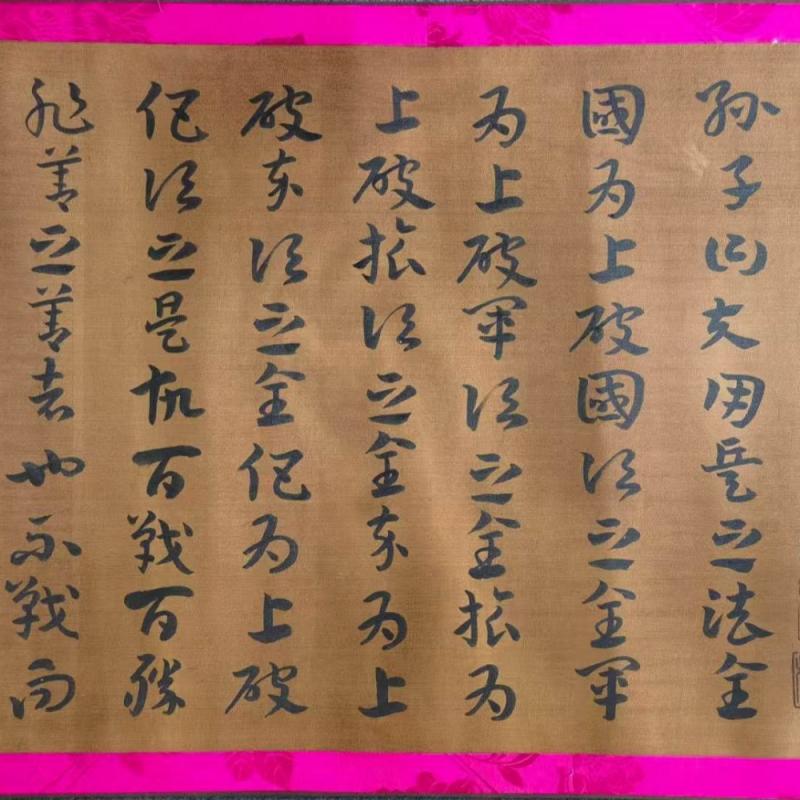 孫子曰夫用兵之法全
國為上破國次之全軍
為上破軍次之全旅為
上破旅次之全卒為上
破卒次之全伍為上破
伍次之是故百戰百勝
非善之善者也不戰而